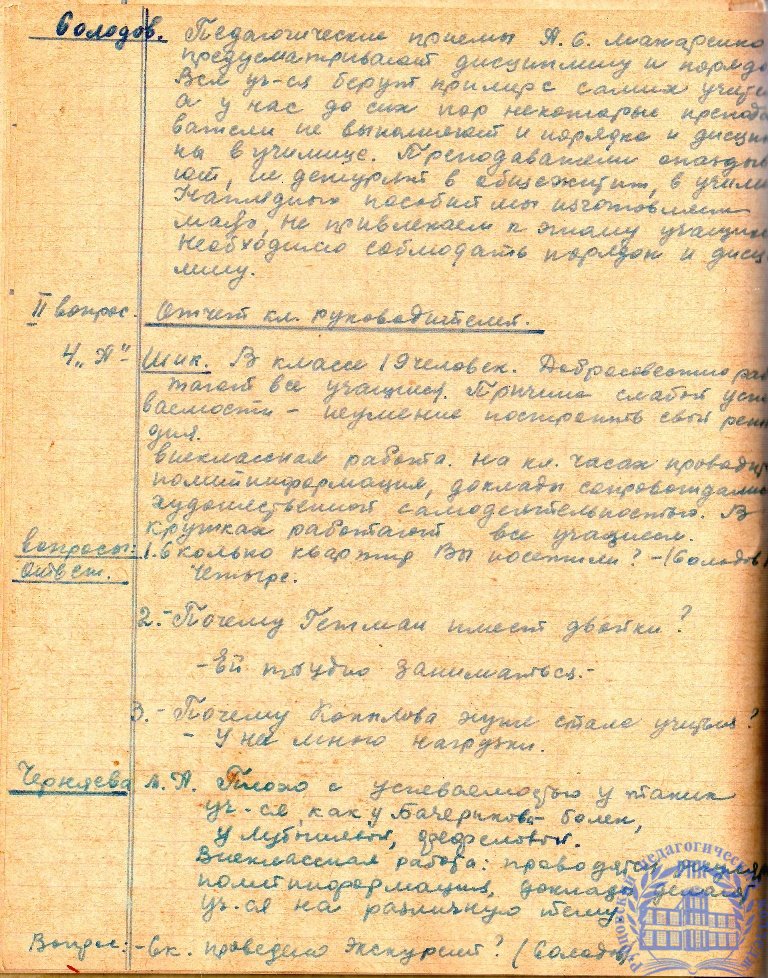 Солодов. Педагогические приемы А. С. Макаренко
предусматривают дисциплину и поряд
Все уч-ся берут пример с самих учит
а у нас до сих пор некоторые препода
ватели не выполняют и порядка и дисцип
ны в училище. Преподаватели опазды
ют, не дежурят в общежитии, в учили
Наглядных пособий мы изготовляем
мало, не привлекаем к этому учащих
необходимо соблюдать порядок и дисц
лину.
II вопрос. Отчет кл. руководителей.
4 „А" Шик. В классе 19 человек. Добросовестно раб
тают все учащиеся. Причина слабой успе
ваемости - неумение построить свой реж
дня.
Внеклассная работа. На кл. часах проводит
политинформация, доклады сопровождались
художественной самодеятельностью. В
кружках работают все учащиеся.
вопросы: 1. Сколько квартир Вы посетили? - (Солодов)
Ответ. Четыре.
2. - Почему Гетман имеет двойки?
- Ей трудно заниматься. -
3. - Почему Копылова хуже стала учиться?
- У нее много нагрузки.
Черняева А. Плохо с успеваемостью у таких
уч-ся, как у Бачериков - болен,
у
Внеклассная работа: проводятся
политинформация, доклады делают
уч-ся на различную тему
Вопрос: - Ск. проведено экскурсий? (Солодов)
педагогический